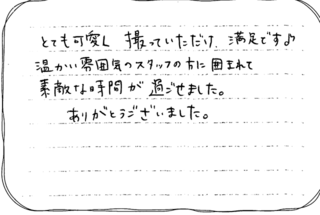 とても可愛く撮っていただけ、満足です♪
温かい雰囲気のスタッフの方に囲まれて
素敵な時間が過ごせました。
ありがとうございました。